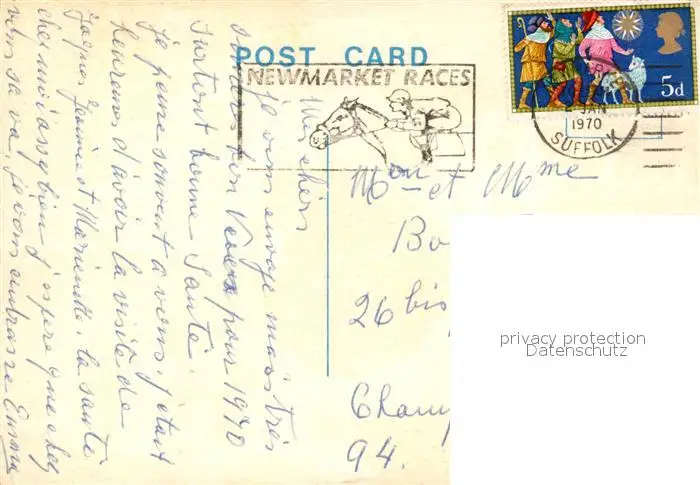 POST CARD
NEWMARKET RACES
5d
JAN
1970
SUFFOLK
Mes chers
je vous envoye mais très
sincères
pour 1970
Surtout bonne Santé.
je pense souvent a vous. j'étais
heureuse d'avoir la visite de
Jacques Jeannine et Marienelle. la santé
chez moi assez bien j'espere que chez
vous sa va, je vous embrasse Emma
Mon et Mme
Bo
26 bis
Champ
94.
privacy protection
Datenschutz